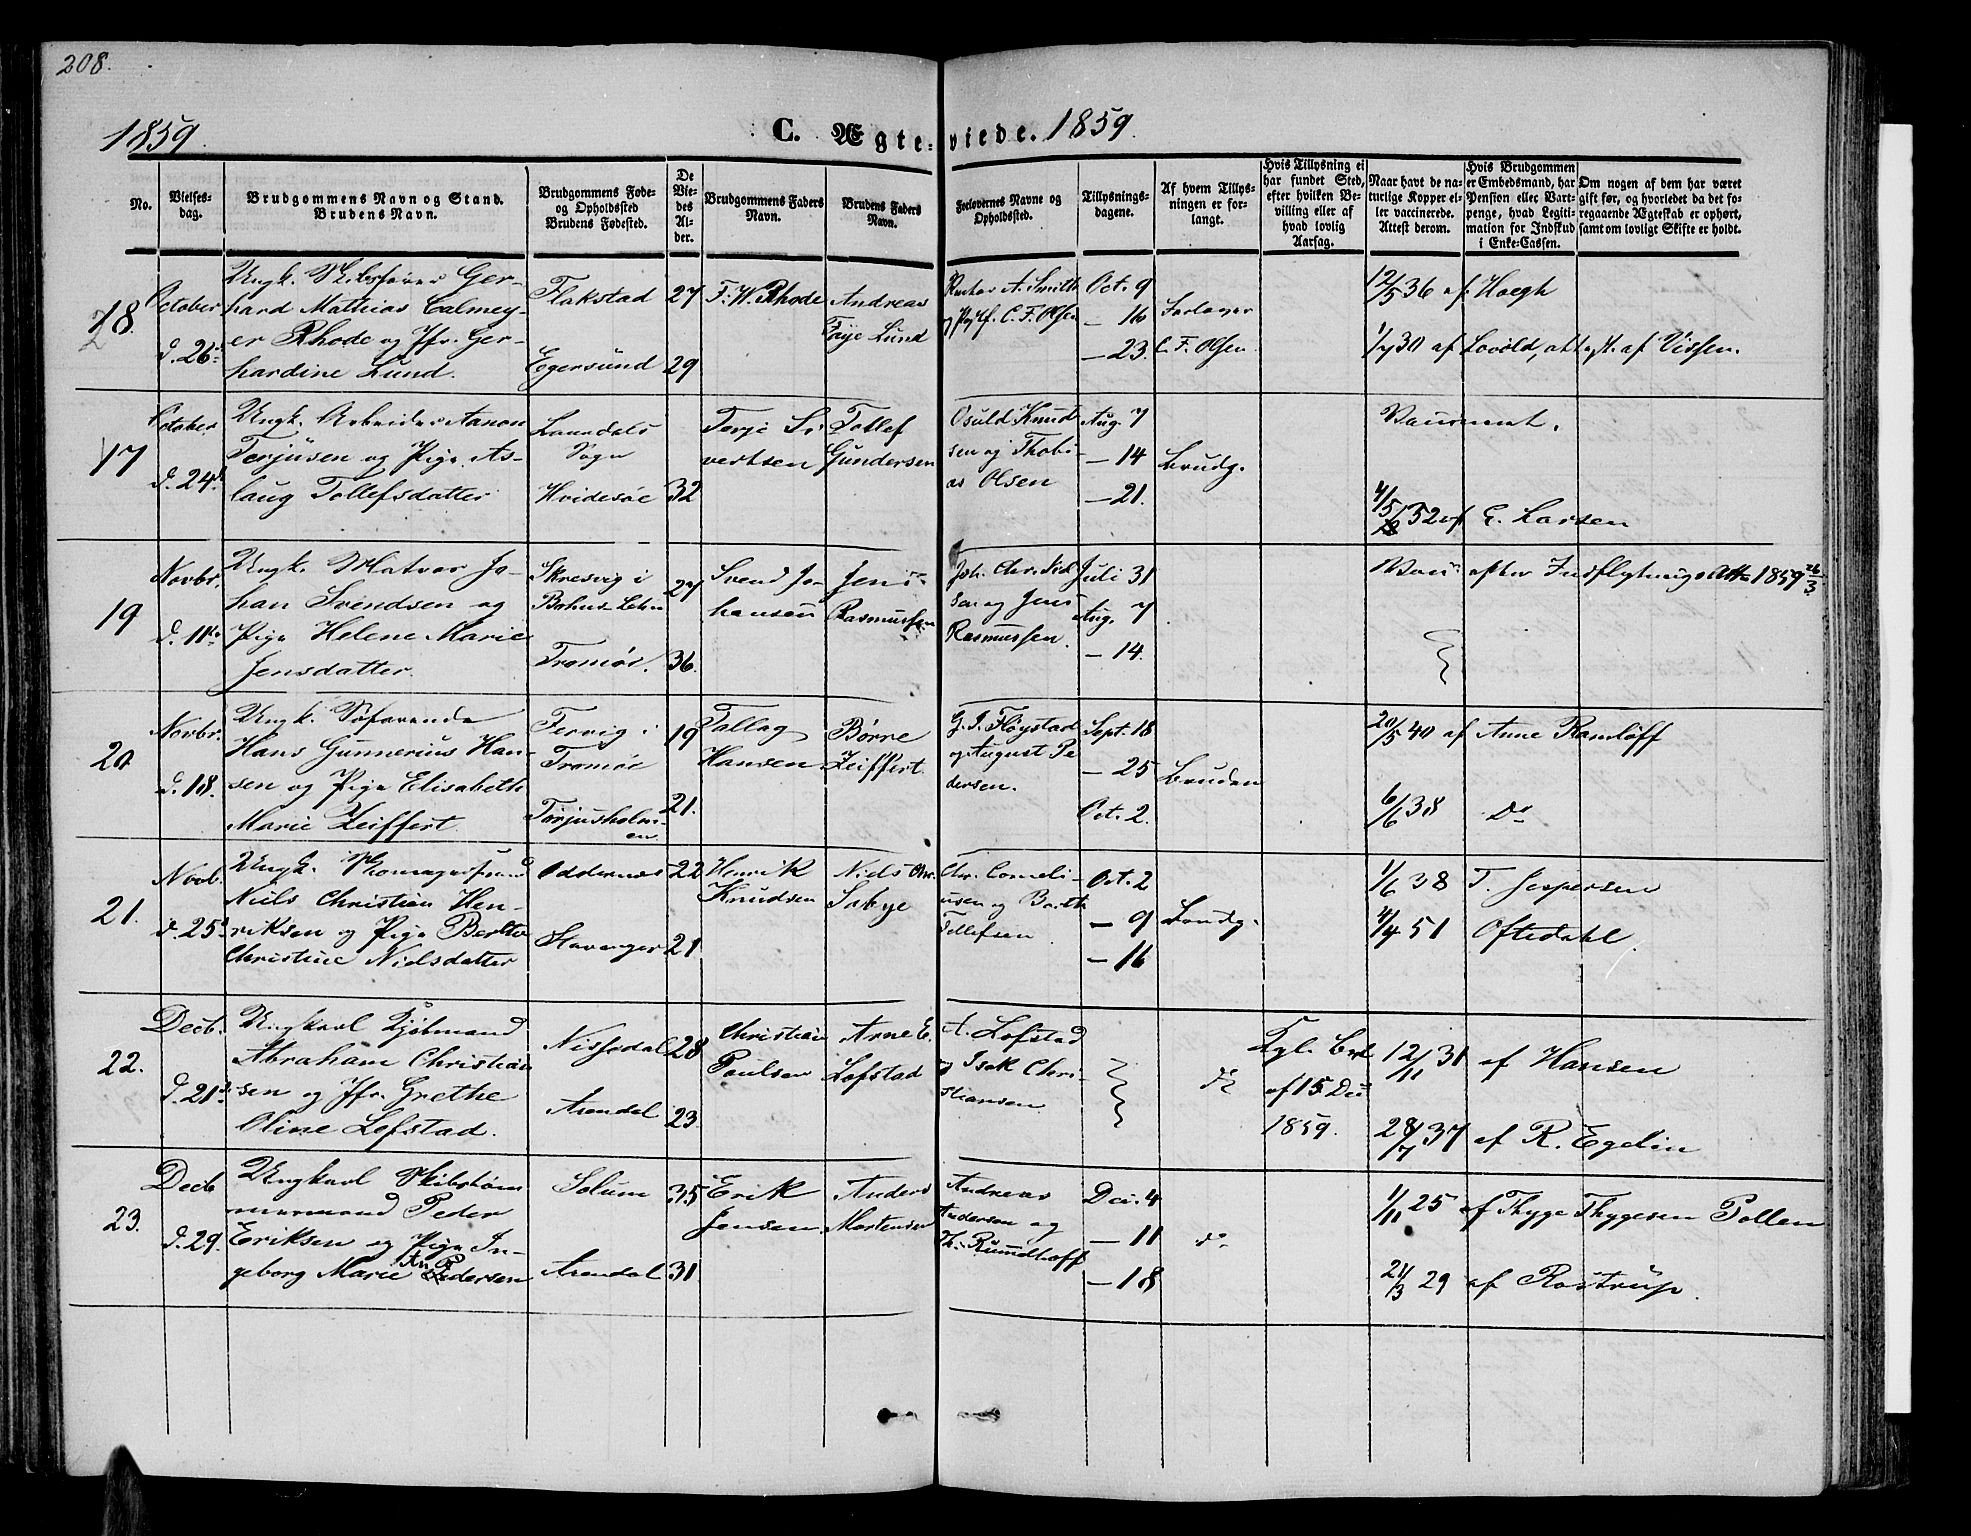 208.
1859.
C. Ægte=viede. 1859.
No.
Vielses-
dag.
Brudgommens Navn og Stand.
Brudens Navn.
Brudgommens Føde-
og Opholdssted
Brudens Fødested.
De
Vie-
des
Al-
der.
Brudgommens Faders
Navn.
Brudens Faders
Navn.
Forlovernes Navne og
Opholdssted.
Tillysnings-
dagene.
Af hvem Tillys-
ningen er for-
langt.
Hvis Tillysning ei
har fundet Sted,
efter hvilken Be-
villing eller af
hvad lovlig
Aarsag.
Naar havt de na-
turlige Kopper el-
ler vaccinerede.
Attest derom.
Hvis Brudgommen
er Embedsmand, har
Pension eller Vart-
penge, hvad Legiti-
mation for Indskud
i Enke-Cassen.
Om nogen af dem har været
gift før, og hvorledet da det fo-
regaaende Ægteskab er ophørt,
samt om lovligt Skifte er holdt.
18.
October
d. 26
Ungk. Skibsfører Ger-
hard Mathias Calmey-
er Rhode og Jfr. Ger-
hardine Lund.
Flakstad
Egersund
27
29
F. W. Rhode
Andreas
Faye Lund
A. Smith
C. F. Olsen
Oct. 9
- 16
- 23.
Forlover
C. F. Olsen.
12/5 36 af Hoegh
1/7 30 af Lovold, attest. af Vissen.
17
October
d. 24
Ungk. Arbeider Aanon
Terjusen og Pige As-
laug Tollefsdatter
Laurdals
Sogn
Hvidesøe
32
Terje Si
vertsen
Tollef
Gundersen
Osuld Knud
sen og Thobi-
as Olsen
Aug. 7
- 14
- 21.
Brudg.
4/5 52 af G. Larsen
19
Novbr.
d. 11
Ungk. Matros Jo-
han Svendsen og
Pige Helene Marie
Jensdatter.
Skresvig i
Bahus Lehn
Tromøe.
27
36.
Svend Jo-
hansen
Jens
Rasmussen
Joh. Chr. Niel
sen og Jens
Rasmussen.
Juli 31
Aug. 7
- 14.
efter Indflytnings Att. 1859 26/3
20
Novbr.
d. 18.
Ungk. Søfarende
Hans Gunnerius Han-
sen og Pige Elisabeth
Marie Zeiffert.
Tervig i
Tromøe
Torjusholm-
en
19
21.
Tallag
Hansen
Børre
Zeiffert.
G. I. Fløystad
og August Pe
dersen.
Sept. 18
- 25
Oct. 2.
Bruden
20/5 40 af Anne Ramløff
6/6 38 Do
21.
Novb.
d. 25
Ungk.
Niels Christian Hen-
riksen og Pige Berthe
Christine Nielsdatter
Oddernes
Stavanger
22
21
Henrik
Knudsen
Niels Chr.
Sabye
Chr. Corneli-
usen og Barth
Tellefsen
Oct. 2
- 9
- 16
Brudg.
1/6 38 T. Jespersen
4/4 51 Oftedahl.
22.
Decb.
d. 21
Ungkarl Kjøbmand
Abraham Christian
sen og Jfr. Grethe
Oline Lofstad.
Nissedal
Arendal
28
23.
Christian
Paulsen
Arne E.
Lofstad
A. Lofstad
og Isak Chri-
stiansen
do
Kgl. Brl
af 15 Dec
1859.
12/11 31 af Hansen
28/7 37 af R. Egelin
23.
Decb
d. 29.
Ungkarl Skibstøm
mermand Peder
Eriksen og Pige In-
geborg Marie An Pedersen
Solum
Arendal
35
31
Erik
Jensen
Anders
Mortensen
Andreas
Andersen og
Th. Rumelhoff
Dec. 4
- 11
- 18
do
1/11 25 af Thyge Thygesen Pollen
21/3 29 af Rostrup.